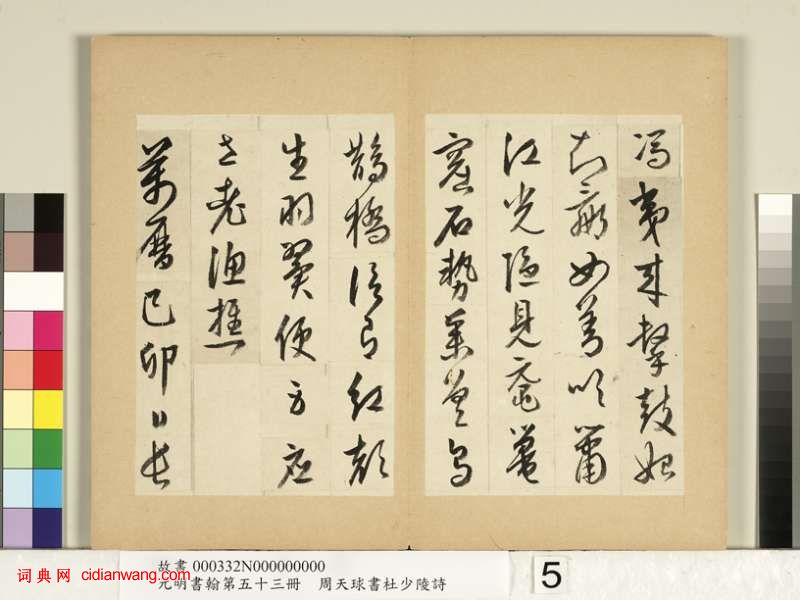 馮夷来擊鼓始
知嬴女善吹簫
江光隐見黿鼉
窟石勢參差烏
鵲橋紅顔
生羽翼便應
老漁樵
萬曆己卯日長
故書 000332N000000000
元明書翰第五十三冊　周天球書杜少陵詩
5
词典网 cidianwang.com